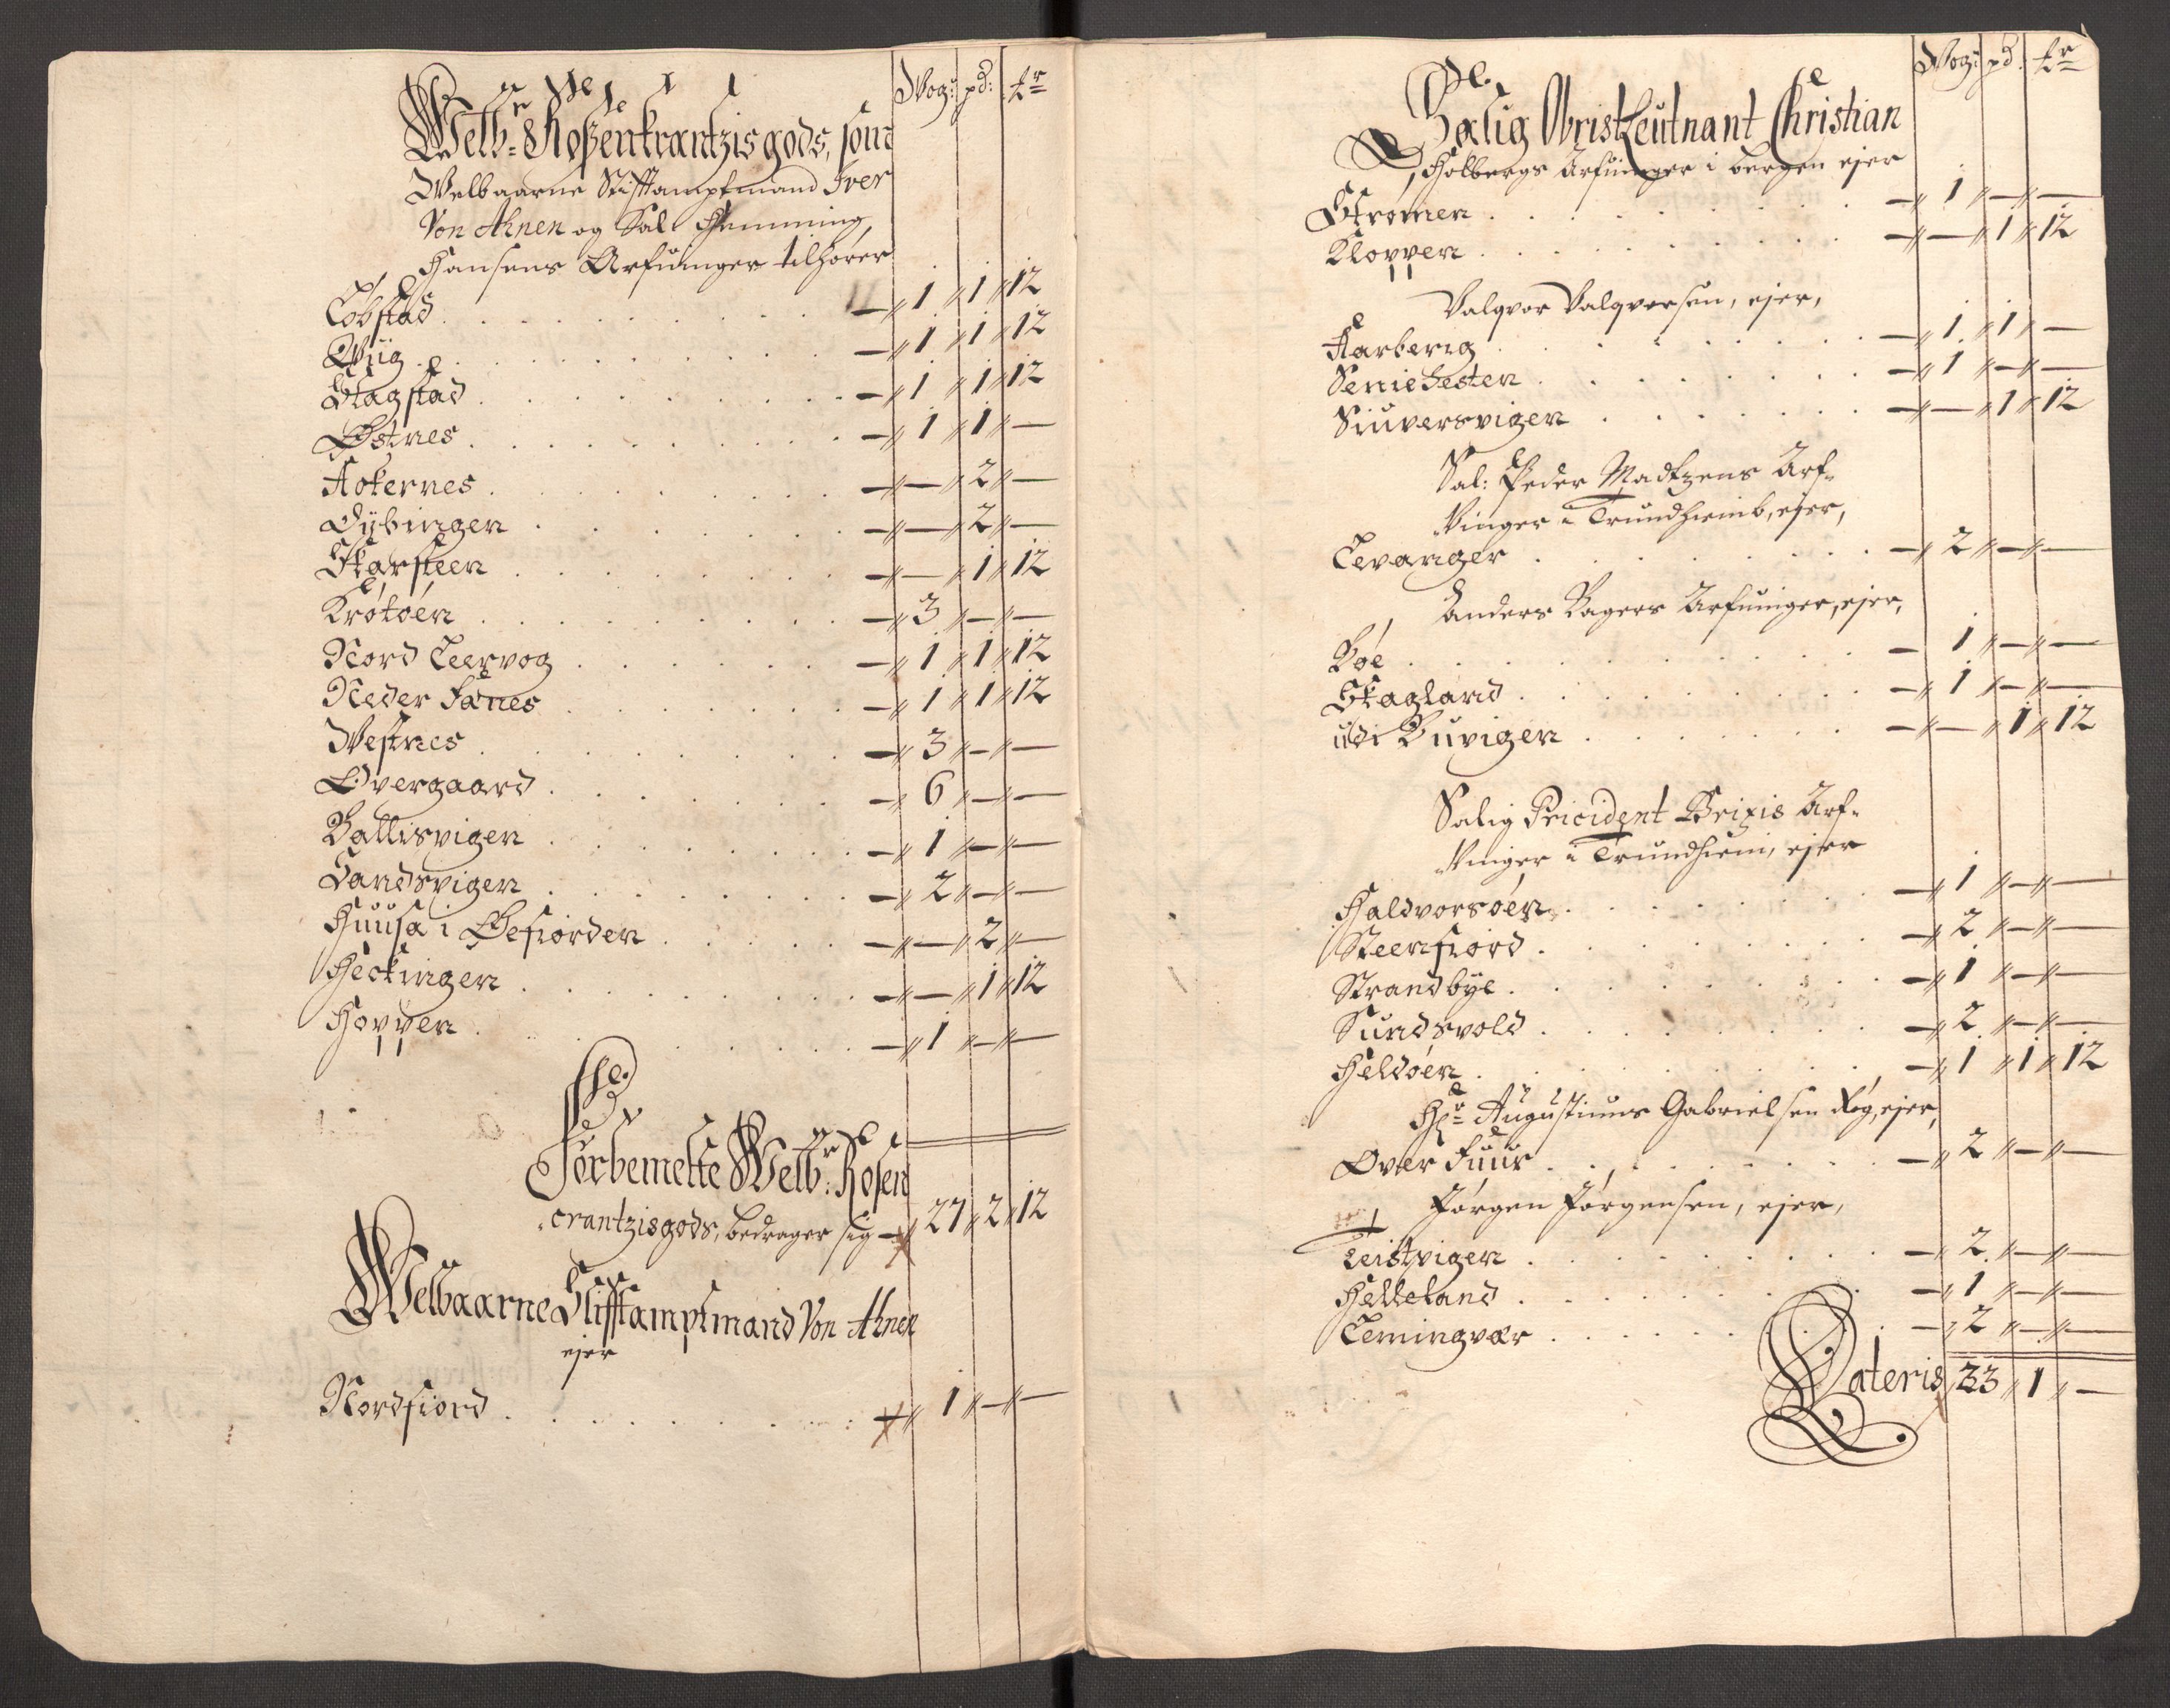 Wog: pd: [?]
Welb: Roßenkrantzis gods, som
Welbaarne Stifftampmand Iver
Von Ahnen og Sal Hemming
Hansens Arfuinger tilhører
Løbstad . . . . . . . . . — 1 1 12
Wiig . . . . . . . . . — 1 1 12
Stagstad . . . . . . . . . — 1 1 12
Østnes . . . . . . . . . — 1 1 —
Aokernes . . . . . . . . . — — 2 —
Dÿbingen . . . . . . . — — 2 —
Skarsteen . . . . . . . . — — 1 12
Krøtøen . . . . . . . . . — 3 — —
Nord Leervog . . . . . . — 1 1 12
Neder Fanes . . . . . . — 1 1 12
Westnes . . . . . . . . . — 3 — —
Øvergaard . . . . . . . — 6 — —
Ballisvigen . . . . . . . . — 1 — —
Sandsvigen . . . . . . . . — 2 — —
Huusa i Øefiorden . . . . . — — 2 —
Heckingen . . . . . . . . — — 1 12
Hoppen . . . . . . . . . — 1 — —
Forbemelte Welb: Rosen
crantzis gods, bedrager sig — 27 2 12
Welbaarne Stifftampmand Von Ahnen
ejer
Nordfiord . . . . . . . . . — 1 — —
Wog: pd:
Salig Obrist Leutnant Christian
Holbergs Arfuinger i bergen ejer
Strømen . . . . . . . . . — 1 — —
Kloppen . . . . . . . . . — — 1 12
Valqvor Valqversen, ejer,
Aarberig . . . . . . . . . — 1 1 —
Seniehesten . . . . . . . . — 1 — —
Siuversvigen . . . . . . . — — 1 12
Sal: Peder Madtzens Arf-
vinger i Trundhiemb, ejer,
Levanger . . . . . . . . . — 2 — —
Anders Bagers Arfuinger, ejer,
Bøe . . . . . . . . . — 1 — —
Skagland . . . . . . . . . — 1 — —
udi Buvigen . . . . . . . — — 1 12
Salig Pricident Brixis Arf-
vinger i Trundhiem, ejer
Haldvorsøen . . . . . . . — 1 — —
Steenfiord . . . . . . . . — 2 — —
Strandbÿe . . . . . . . . — 1 — —
Sundsvold . . . . . . . . — 2 — —
Heldøen . . . . . . . . . — 1 1 12
Hr Augustinus Gabrielsen Røg, ejer,
Over Fuur . . . . . . . . — 2 — —
Jørgen Jørgensen, ejer,
Teistvigen . . . . . . . . — 2 — —
Helleland . . . . . . . . — 1 — —
Lemingvær . . . . . . . . — 2 — —
Lateris 23 1 —